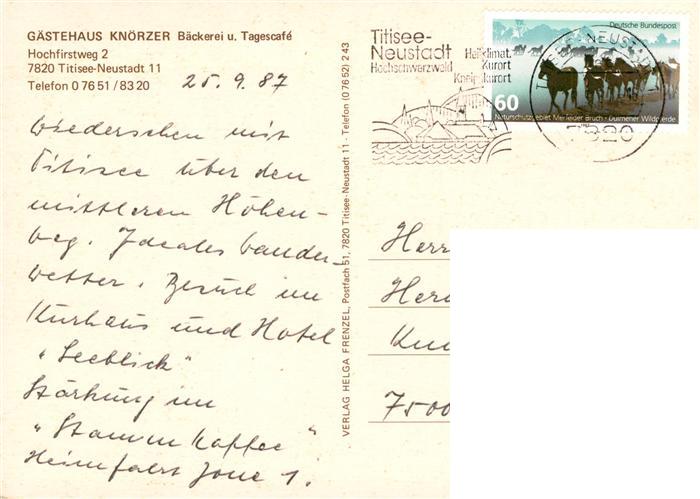 GÄSTEHAUS KNÖRZER Bäckerei u. Tagescafé
Hochfirstweg 2
7820 Titisee-Neustadt 11
Telefon 0 76 51 / 83 20
25. 9. 87
Wiedersehen mit
Titisee über den
mittleren Höhen-
weg. Ideales Wander-
wetter. Besuch im
Kurhaus und Hotel
"Seeblick"
Stärkung im
"Stammkaffee"
Heimfahrt Zone 1.
VERLAG HELGA FRENZEL, Postfach 51, 7820 Titisee-Neustadt 11 - Telefon (0 76 52) 2 43
Titisee-
Neustadt
Hochschwarzwald
Heilklimat.
Kurort
Kneippkurort
Deutsche Bundespost
60
Naturschutzgebiet Merfelder Bruch · Dülmener Wildpferde
7820
Herr
Her
Kun
7500